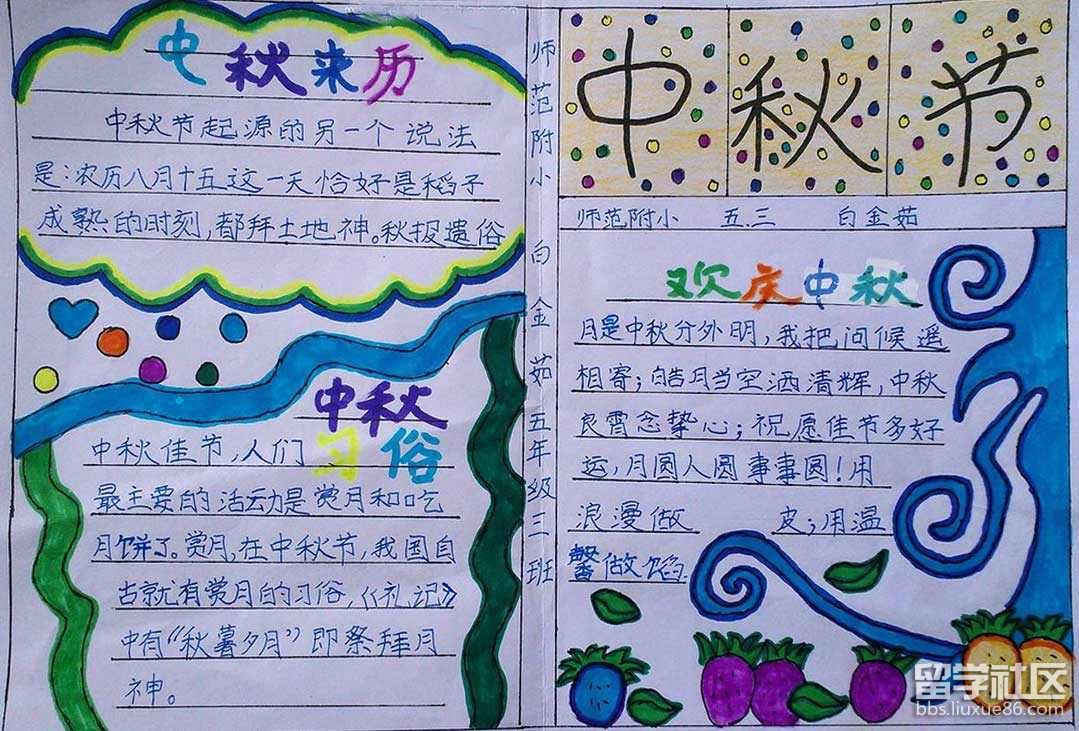 中秋来历
中秋节起源的另一个说法
是:农历八月十五这一天恰好是稻子
成熟的时刻,都拜土地神。秋报遗俗
中秋
习俗
中秋佳节,人们
最主要的活动是赏月和吃
月饼了。赏月,在中秋节,我国自
古就有赏月的习俗,《礼记》
中有“秋暮夕月”即祭拜月
神。
师范附小 白金茹 五年级三班
中秋节
师范附小 五.三 白金茹
欢庆中秋
月是中秋分外明,我把问候遥
相寄;皓月当空洒清辉,中秋
良霄念挚心;祝愿佳节多好
运,月圆人圆事事圆!用
浪漫做 皮;用温
馨做馅
留学社区
bbs.liuxue86.com